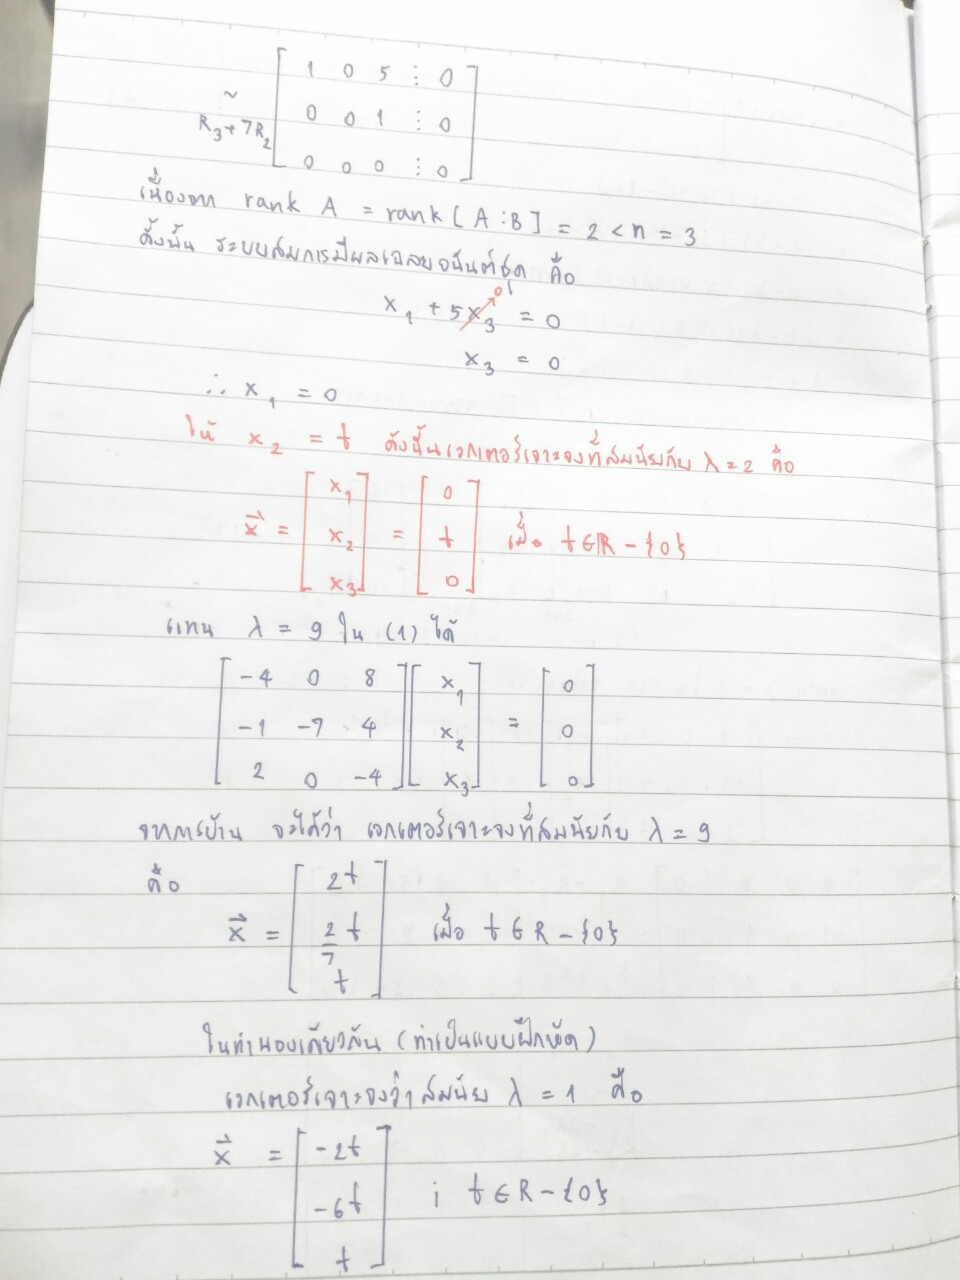 [ 1 0 5 ⋮ 0 ]
~ R₃+7R₂ [ 0 0 1 ⋮ 0 ]
[ 0 0 0 ⋮ 0 ]
เนื่องจาก rank A = rank [ A ⋮ B ] = 2 < n = 3
ดังนั้น ระบบสมการมีผลเฉลยอนันต์ชุด คือ
x₁ + 5x₃ = 0
0
x₃ = 0
∴ x₁ = 0
ให้ x₂ = t ดังนั้นเวกเตอร์เจาะจงที่สมนัยกับ λ = 2 คือ
[ x₁ ] [ 0 ]
x⃗ = [ x₂ ] = [ t ] เมื่อ t ∈ R - {0}
[ x₃ ] [ 0 ]
แทน λ = 9 ใน (1) ได้
[ -4 0 8 ] [ x₁ ] [ 0 ]
[ -1 -7 4 ] [ x₂ ] = [ 0 ]
[ 2 0 -4 ] [ x₃ ] [ 0 ]
จากการบ้าน จะได้ว่า เวกเตอร์เจาะจงที่สมนัยกับ λ = 9
คือ [ 2t ]
x⃗ = [ 2/7 t ] เมื่อ t ∈ R - {0}
[ t ]
ในทำนองเดียวกัน (ทำเป็นแบบฝึกหัด)
เวกเตอร์เจาะจงว่าสมนัย λ = 1 คือ
x⃗ = [ -2t ]
[ -6t ] ; t ∈ R - {0}
[ t ]